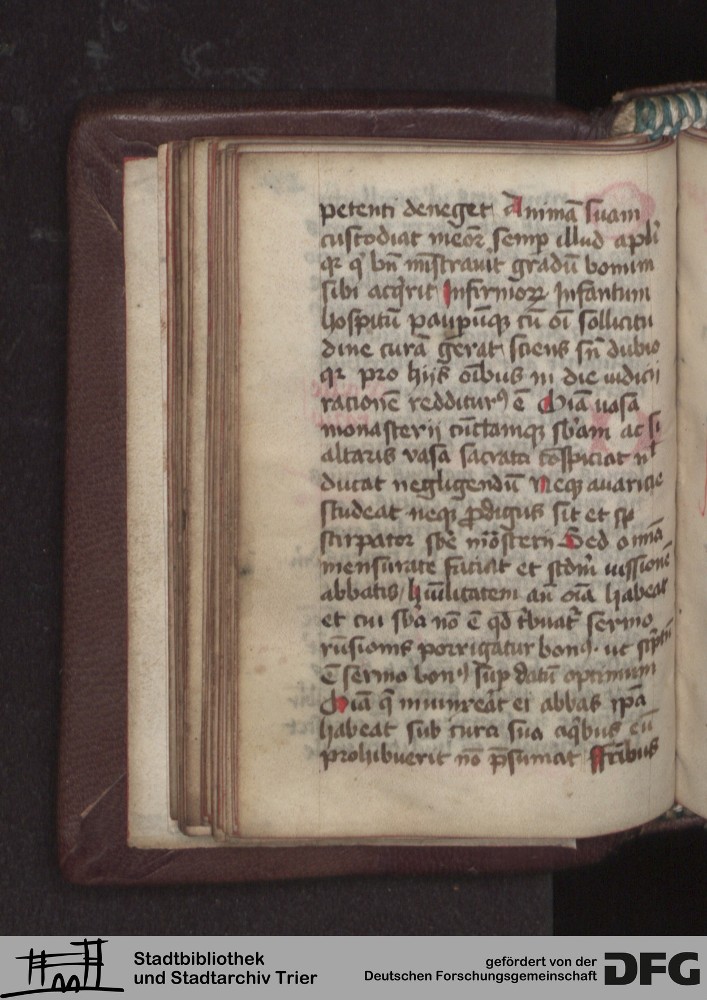 petenti deneget Animā suam
custodiat meōꝝ semp illud apli
qꝛ q bn̄ mīstrauit gradū bonum
sibi acq̄rit Infirmoꝝ Infantum
hospitū paupūqꝫ cū oī sollicitu
dine curā gerat sciens sn̄ dubio
qꝛ pro hijs oībus in die iudicij
racionē redditurꝰ ē Oīa uasa
monasterij cūctamqꝫ sb̄am ac si
altaris vasa sacrata cōspiciat nl
ducat negligendū Neqꝫ auaricie
studeat neqꝫ ꝓdigus sit et
stirpator sb̄e mōsterij Sed omīa
mensurate faciat et scdm̄ iussionē
abbatis hūilitatem an̄ oīa habeat
et cui sb̄a nō ē qd tbuat̄ sermo
rūsionis porrigatur bonꝰ ut scptū
ē sermo bonꝰ sup datū optimum
Oīa q̄ iniunx̄it ei abbas ip̄a
habeat sub cura sua aq̄bus eū
prohibuerit nō p̄sumat Frībus
Stadtbibliothek
und Stadtarchiv Trier
gefördert von der
Deutschen Forschungsgemeinschaft
DFG